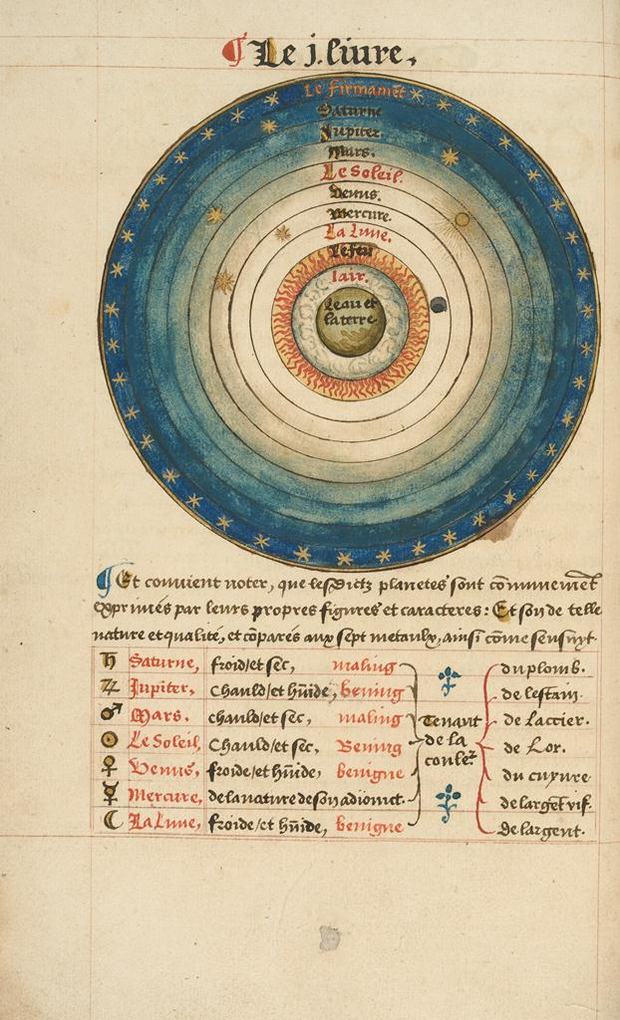 ¶ Le j. liure.
Le firmamēt
Saturne
Jupiter.
Mars.
Le Soleil.
Venus.
Mercure.
La Lune.
Lefeu
lair.
Leau et
la terre
¶ Et conuient noter, que lesdictz planetes sont cōmunemēt
exprimés par leurs propres figures et caracteres: Et son de telle
nature et qualité, et cōparés aux sept metaulx, ainsi cōme sensuyt.
♄ Saturne, froid/et sec, maling
♃ Jupiter, Chauld/et hūide, bening
♂ Mars. chauld/et sec, maling
☉ Le Soleil, Chauld/et sec, Bening
♀ Venus, froide/et hūide, benigne
☿ Mercure, de la nature de son adioinct.
☾ La Lune, froide/et hūide, benigne
Tenant
de la
coulēr
du plomb.
de lestain.
de laccier.
de Lor.
du cuyure
de largēt vif.
de largent.